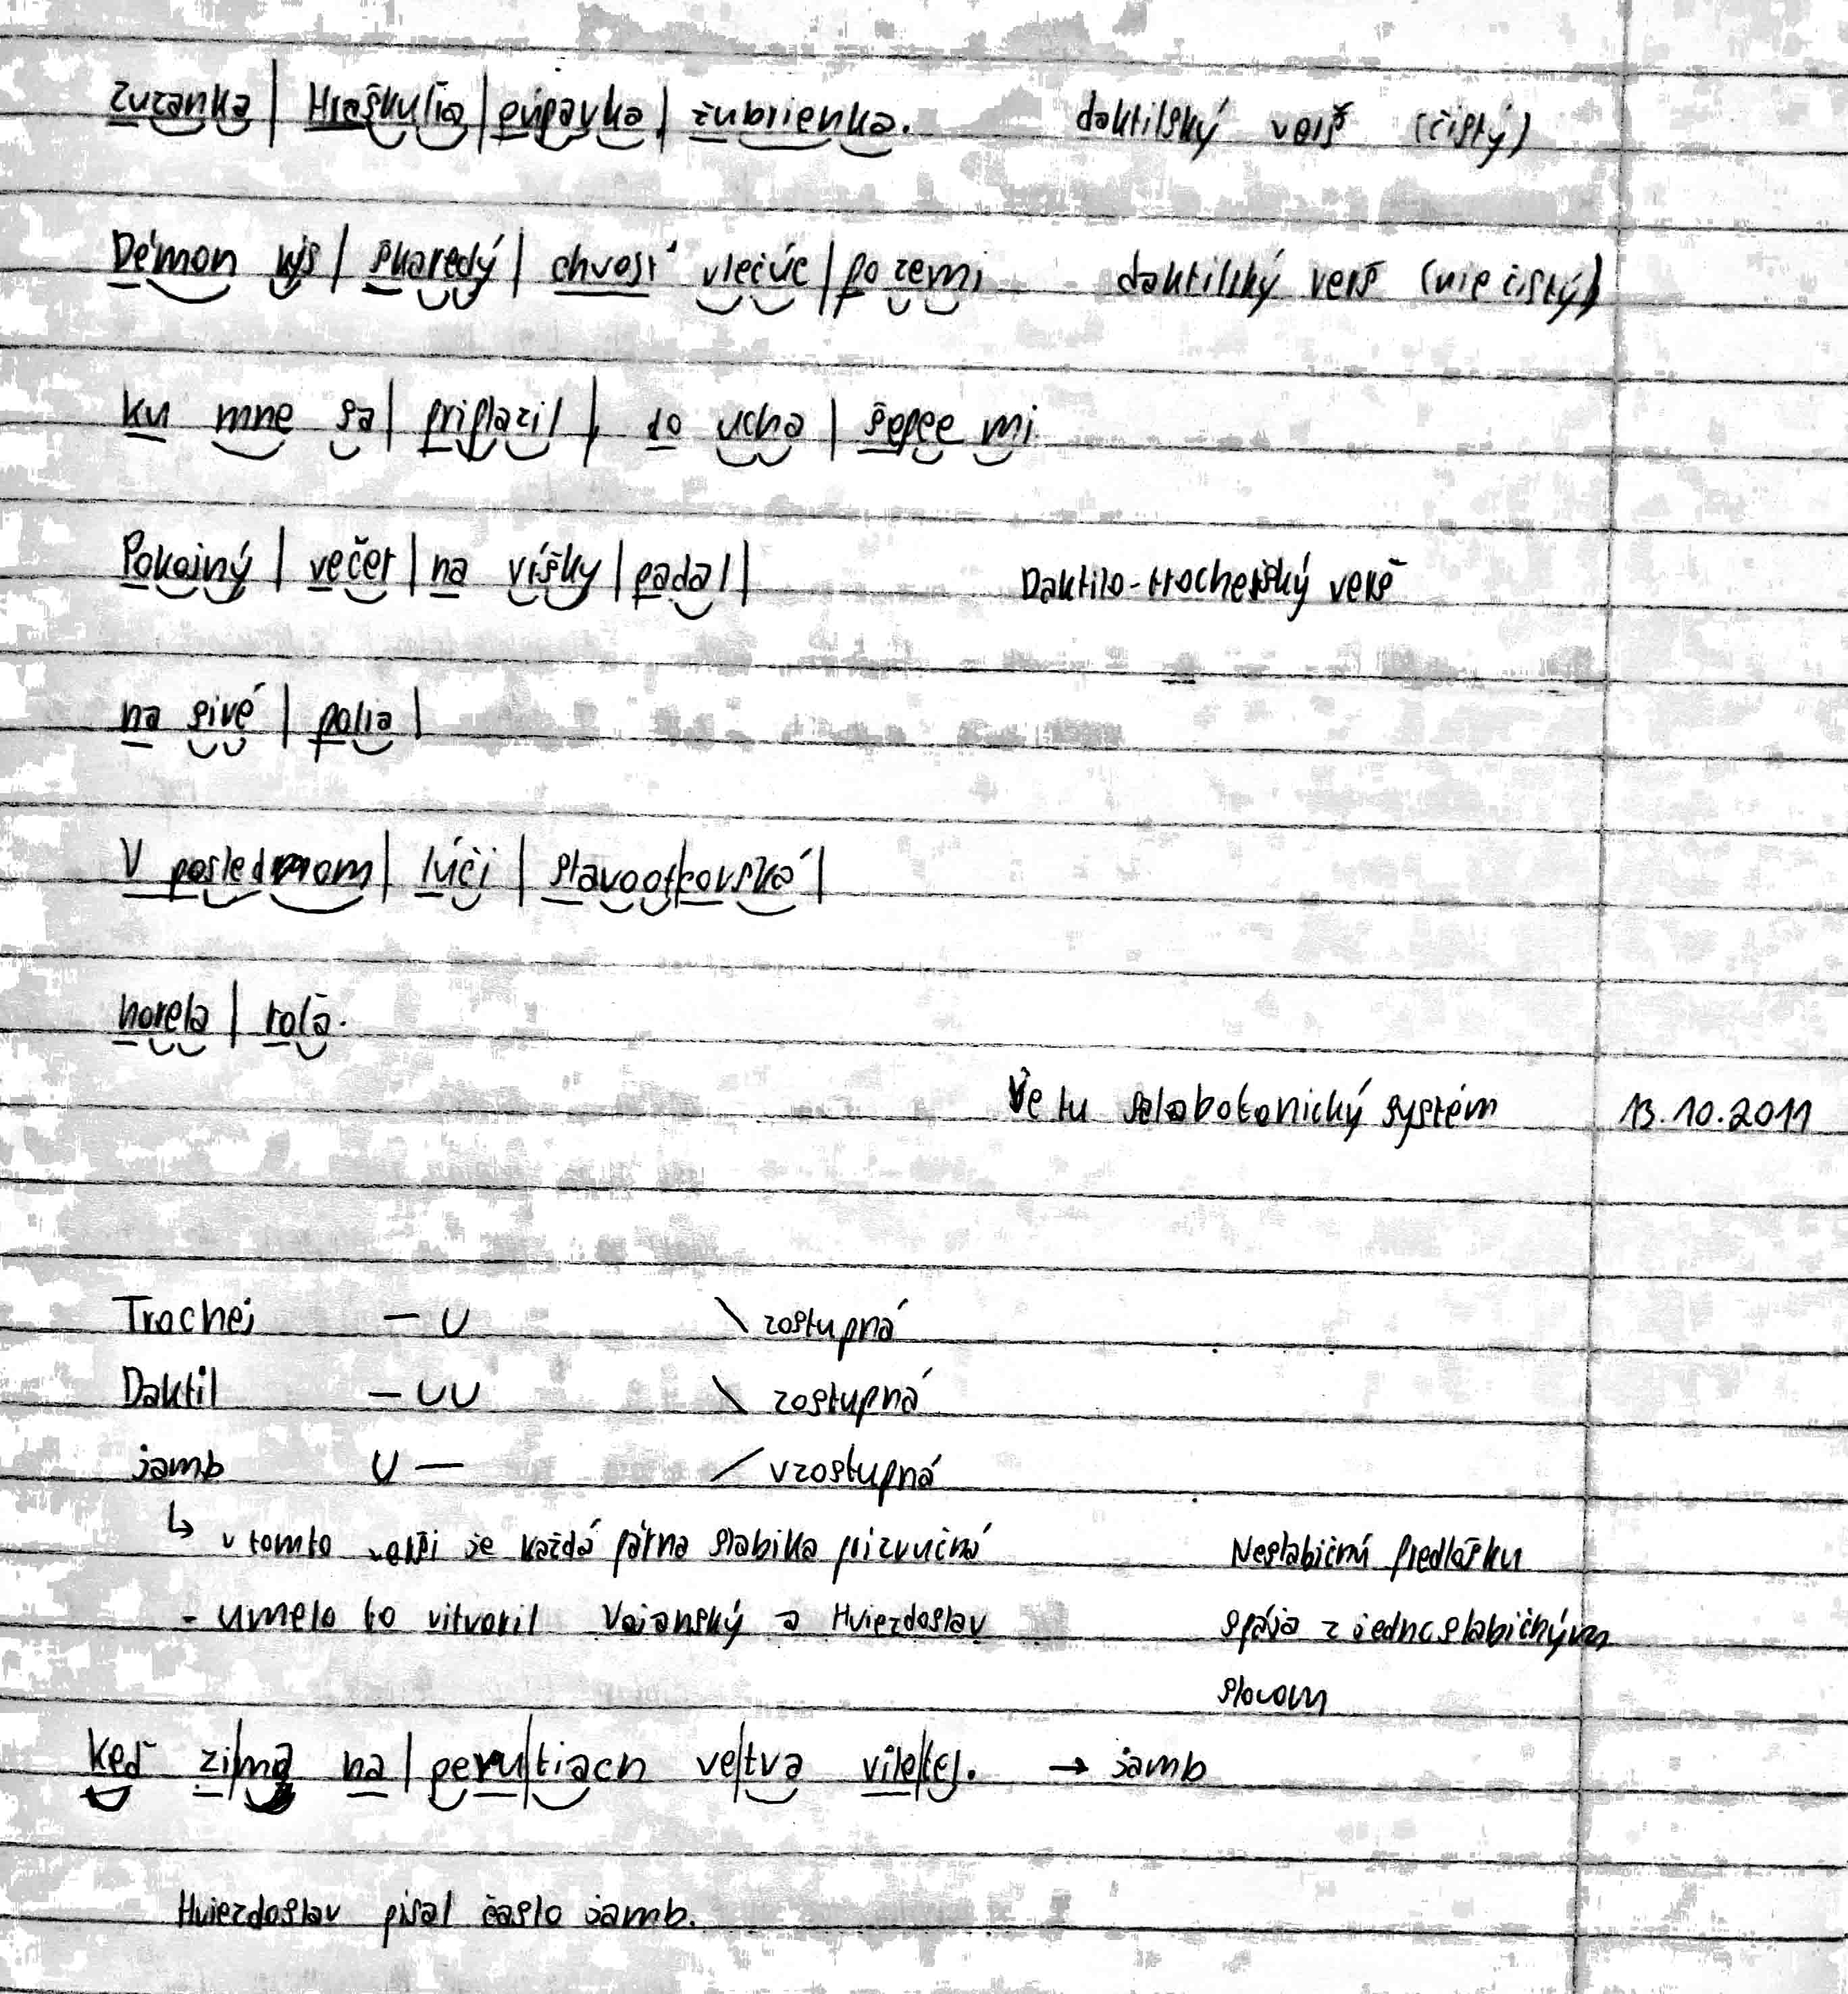 Zuzanka | Hraškulia | púpavka | žubrienka. daktilský verš (čistý)
Démon kýs | škaredý | chvost vlečúc | po zemi daktilský verš (nie čistý)
ku mne sa | priplazil | do ucha | šepce mi
Pokojný | večer | na víšky | padal | Daktilo-trochejský verš
na sivé | polia |
V poslednom | lúči | starootcovská |
horela | roľa.
Je tu slabotonický systém 13.10.2011
Trochej — U \ zostupná
Daktil — UU \ zostupná
jamb U — / vzostupná
↳ v tomto verši je každá párna slabika prízvučná Neslabičnú predložku
- umelo to vitvoril Vajanský a Hviezdoslav spája z jednoslabičným
slovom
Keď zi|ma na | peru|tiach ve|tva vile|tej. → jamb
Hviezdoslav písal často jamb.